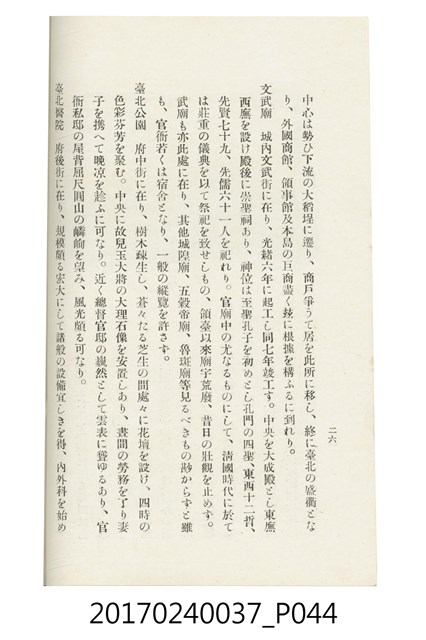 二六
中心は勢ひ下流の大稻埕に遷り、商戶爭うて居を此所に移し、終に臺北の盛衢とな
り、外國商館、領事館及本島の巨商盡く玆に根據を構ふるに到れり。
文武廟　城內文武街に在り、光緖六年に起工し同七年竣工す。中央を大成殿とし東廡
西廡を設け殿後に崇聖祠あり、神位は至聖孔子を初めとし孔門の四聖、東西十二哲、
先賢七十九、先儒六十一人を祀れり。官廟中の尤なるものにして、淸國時代に於て
は莊重の儀典を以て祭祀を致せしもの、領臺以來廟宇荒廢、昔日の壯觀を止めず。
武廟も亦此處に在り、其他城隍廟、五穀帝廟、魯班廟等見るべきもの尠からずと雖
も、官衙若くは宿舍となり、一般の縱覽を許さず。
臺北公園　府中街に在り、樹木疎生し、蒼々たる芝生の間處々に花壇を設け、四時の
色彩芬芳を聚む。中央に故兒玉大將の大理石像を安置しあり、晝間の勞務を了り妻
子を携へて晚凉を趁ふに可なり。近く總督官邸の巍然として雲表に聳ゆるあり、官
衙私邸の屋背屈尺圓山の嶙峋を望み、風光頗る可なり。
臺北醫院　府後街に在り、規模頗る宏大にして諸般の設備宜しきを得、內外科を始め
20170240037_P044